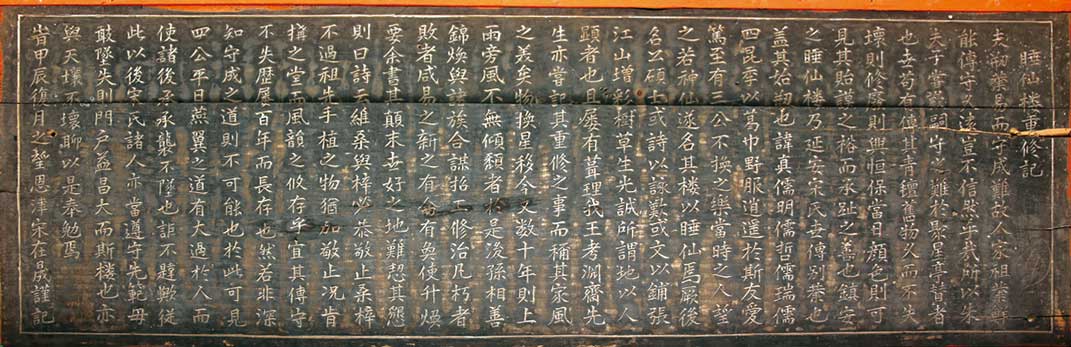 睡仙樓重修記
夫刱業易而守成難故人家祖業鮮
能傳守久遠豈不信然乎我所以朱
夫子嘗識嗣守之難於聚星亭昔者
也苟有傳其靑氈舊物久而不失
壞則修廢則興恒保當日顔色則可
見其貽謨之裕而承趾之善也鎭安
之睡仙樓乃延安宋氏世傳別業也
盖其始刱也諱眞儒明儒哲儒瑞儒
四昆季以葛巾野服逍遙於斯友愛
篤至有三公不換之樂當時之人望
之若神仙遂名其樓以睡仙匡嚴後
名公碩士或詩以詠歎或文以鋪張
江山增彩樹草生光誠所謂地以人
顯者也且屢有葺理我王考淵齋先
生亦嘗記其重修之事而稱其家風
之美矣物換星移今又數十年則上
雨旁風不無傾頹者於是後孫相善
錦煥與諸族合謀招工修治凡朽者
敗者咸易之新之有侖有奐使升煥
要余書其顚末世好之地難恝其懇
則曰詩云維桑與梓必恭敬止桑梓
不過祖先手植之物猶加敬止況肯
搆之堂而風韻之攸存乎宜其傳守
不失歷屢百年而長存也然若非深
知守成之道則不可能也於此可見
四公平日燕翼之道有大過於人而
使諸後承承襲不墜也詎不韙歟從
此以後宋氏諸人亦當遵守先範毋
敢墜失則門戶益昌大而斯樓也亦
與天壤不壞聊以是奉勉焉
旹甲辰復月之望恩津宋在晟謹記